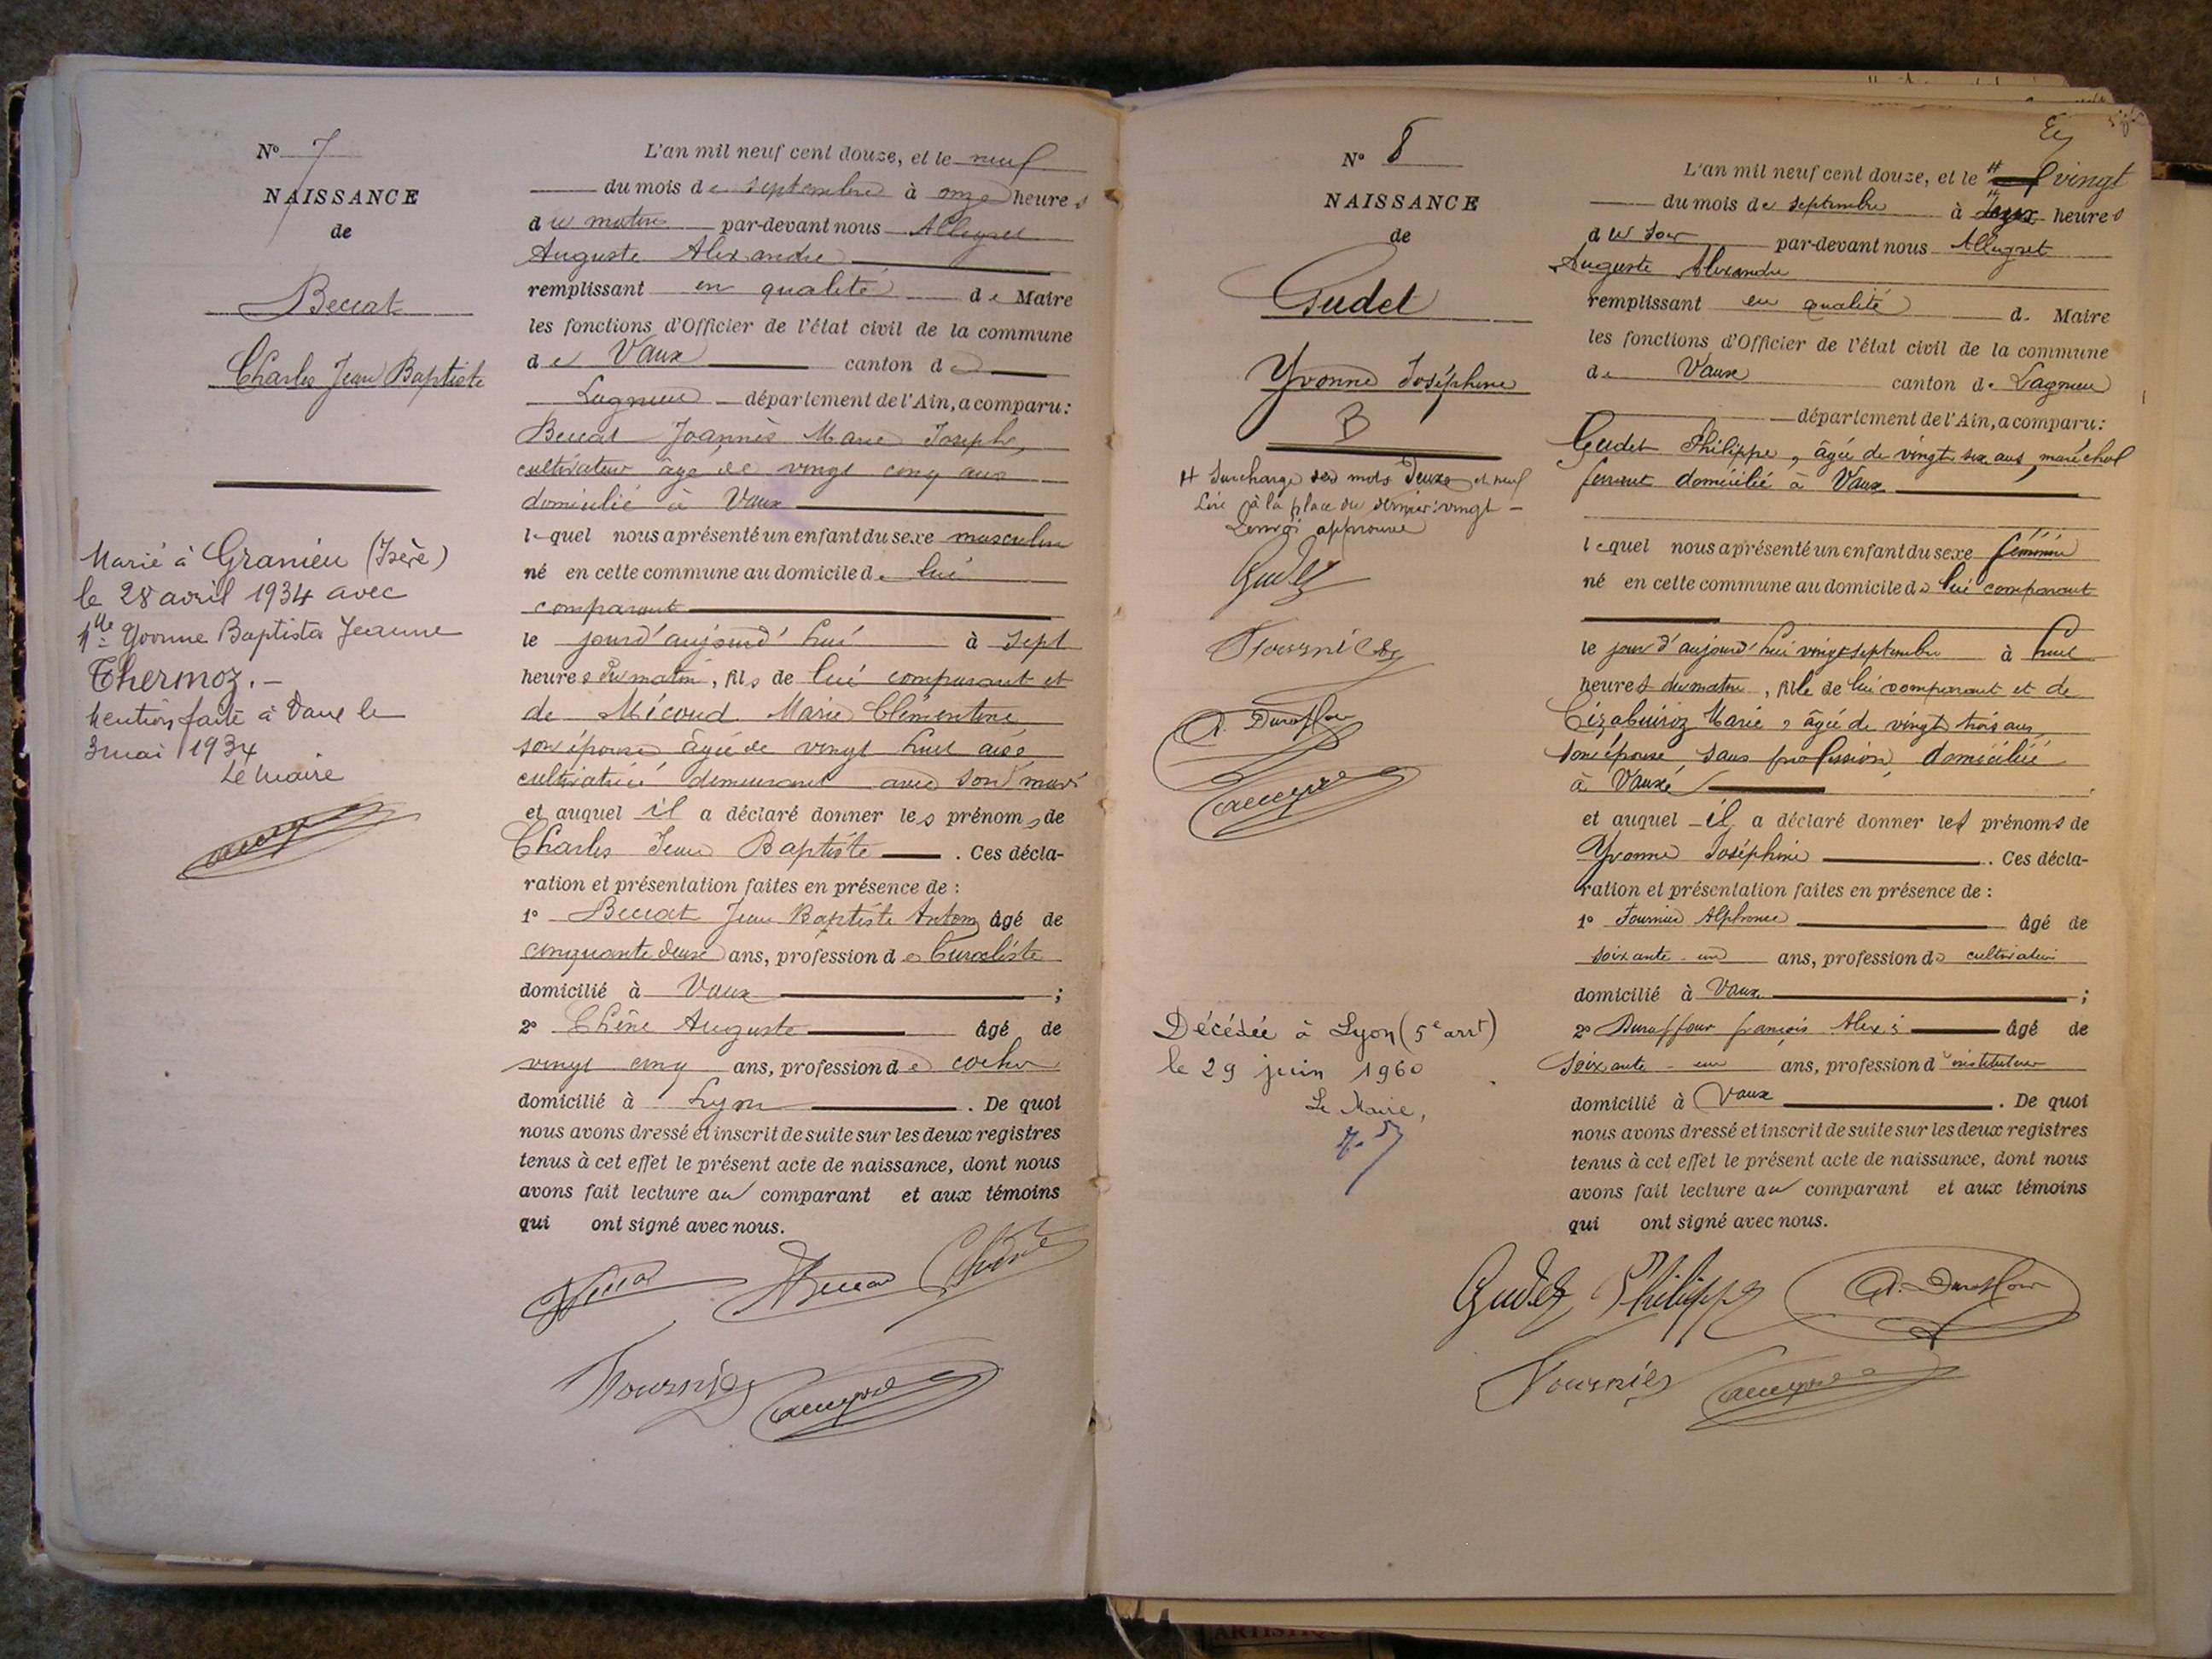 N° 7
NAISSANCE
de
Beccat
Charles Jean Baptiste
Marié à Granieu (Isère)
le 28 avril 1934 avec
Mlle Yvonne Baptista Jeanne
Thermoz. -
Mention faite à Vaux le
3 mai 1934
Le Maire
L'an mil neuf cent douze, et le neuf
du mois de septembre à onze heures
du matin par-devant nous Allegret
Auguste Alexandre
remplissant en qualité de Maire
les fonctions d'Officier de l'état civil de la commune
de Vaux canton de
Lagnieu département de l'Ain, a comparu:
Beccat Joannès Marie Joseph,
cultivateur âgé de vingt cinq ans
domicilié à Vaux
lequel nous a présenté un enfant du sexe masculin
né en cette commune au domicile de lui
comparant
le jourd'aujourd'hui à sept
heures du matin, fils de lui comparant et
de Micoud Marie Clémentine
son épouse âgée de vingt huit ans
cultivatrice demeurant avec son mari
et auquel il a déclaré donner les prénoms de
Charles Jean Baptiste . Ces décla-
ration et présentation faites en présence de :
1° Beccat Jean Baptiste Antony âgé de
cinquante deux ans, profession de buraliste
domicilié à Vaux ;
2° Chêne Auguste âgé de
vingt cinq ans, profession de cocher
domicilié à Lyon . De quoi
nous avons dressé et inscrit de suite sur les deux registres
tenus à cet effet le présent acte de naissance, dont nous
avons fait lecture au comparant et aux témoins
qui ont signé avec nous.
Beccat Chêne
Fournier
N° 8
NAISSANCE
de
Gudet
Yvonne Joséphine
B
# Surcharge des mots deuxe et neuf
Lire à la place du dernier: vingt -
Renvoi approuvé
Gudet
Fournier
A. Duraffour
Décédée à Lyon (5e arrt)
le 29 juin 1960
Le Maire,
L'an mil neuf cent douze, et le # vingt
du mois de septembre à heures
du soir par-devant nous Allegret
Auguste Alexandre
remplissant en qualité de Maire
les fonctions d'Officier de l'état civil de la commune
de Vaux canton de Lagnieu
département de l'Ain, a comparu:
Gudet Philippe, âgé de vingt six ans, maréchal
ferrant domicilié à Vaux
lequel nous a présenté un enfant du sexe féminin
né en cette commune au domicile de lui comparant
le jourd'aujourd'hui vingt septembre à huit
heures du matin, fille de lui comparant et de
Marie, âgée de vingt trois ans,
son épouse sans profession, domiciliée
à Vaux
et auquel il a déclaré donner les prénoms de
Yvonne Joséphine . Ces décla-
ration et présentation faites en présence de :
1° Fournier Alphonse âgé de
soixante-un ans, profession de cultivateur
domicilié à Vaux ;
2° Duraffour françois Alexis âgé de
soixante-un ans, profession d'instituteur
domicilié à Vaux . De quoi
nous avons dressé et inscrit de suite sur les deux registres
tenus à cet effet le présent acte de naissance, dont nous
avons fait lecture au comparant et aux témoins
qui ont signé avec nous.
Gudet Philippe A. Duraffour
Fournier